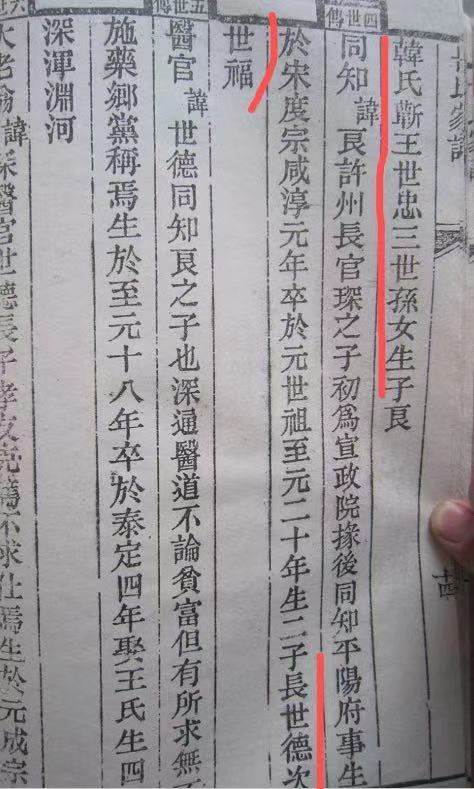 氏家譜
韓氏蘄王世忠三世孫女生子艮
四世傳
同知 諱艮許州長官琛之子初為宣政院掾後同知平陽府事生
於宋度宗咸淳元年卒於元世祖至元二十年生二子長世德次
世福
五世傳
醫官 諱世德同知艮之子也深通醫道不論貧富但有所求無不
施藥鄉黨稱焉生於至元十八年卒於泰定四年娶王氏生四
深渾淵河
六世
大老翁諱深醫官世德長子孝友克不求仕焉生於元成宗